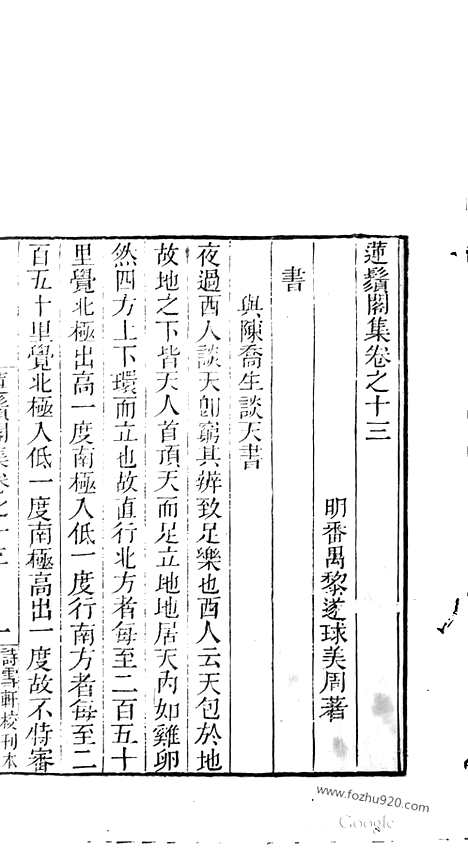 蓮鬚閣集卷之十三
明番禺黎遂球美周著
書
與陳喬生談天書
夜過西人談天卽窮其辨致足樂也西人云天包於地
故地之下皆天人首頂天而足立地地居天內如雞卵
然四方上下環而立也故直行北方者每至二百五十
里覺北極出高一度南極入低一度行南方者每至二
百五十里覺北極入低一度南極高出一度故不待審
蓮鬚閣集卷之十三
一
詩雪軒校刊本
www.fozhu920.com
Google